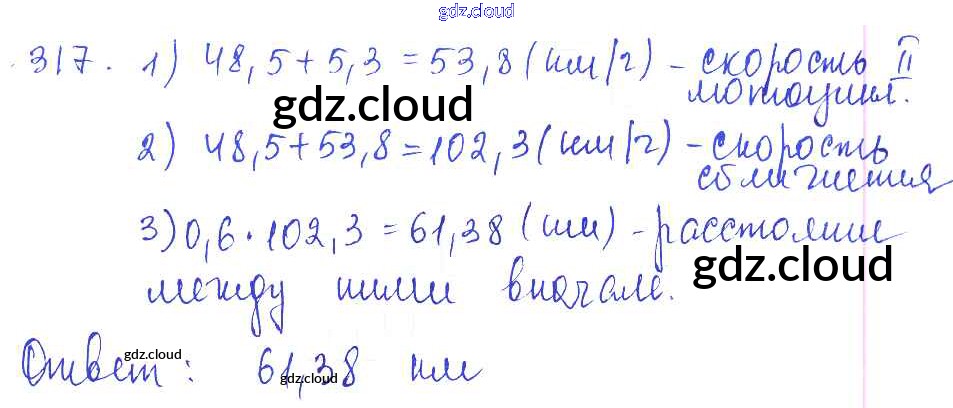 gdz.cloud
317. 1) 48,5 + 5,3 = 53,8 (км/ч) - скорость II
мотоцикл.
gdz.cloud
2) 48,5 + 53,8 = 102,3 (км/ч) - скорость
сближения
3) 0,6 · 102,3 = 61,38 (км) - расстояние
gdz.cloud
между ними вначале.
Ответ: 61,38 км
gdz.cloud
gdz.cloud